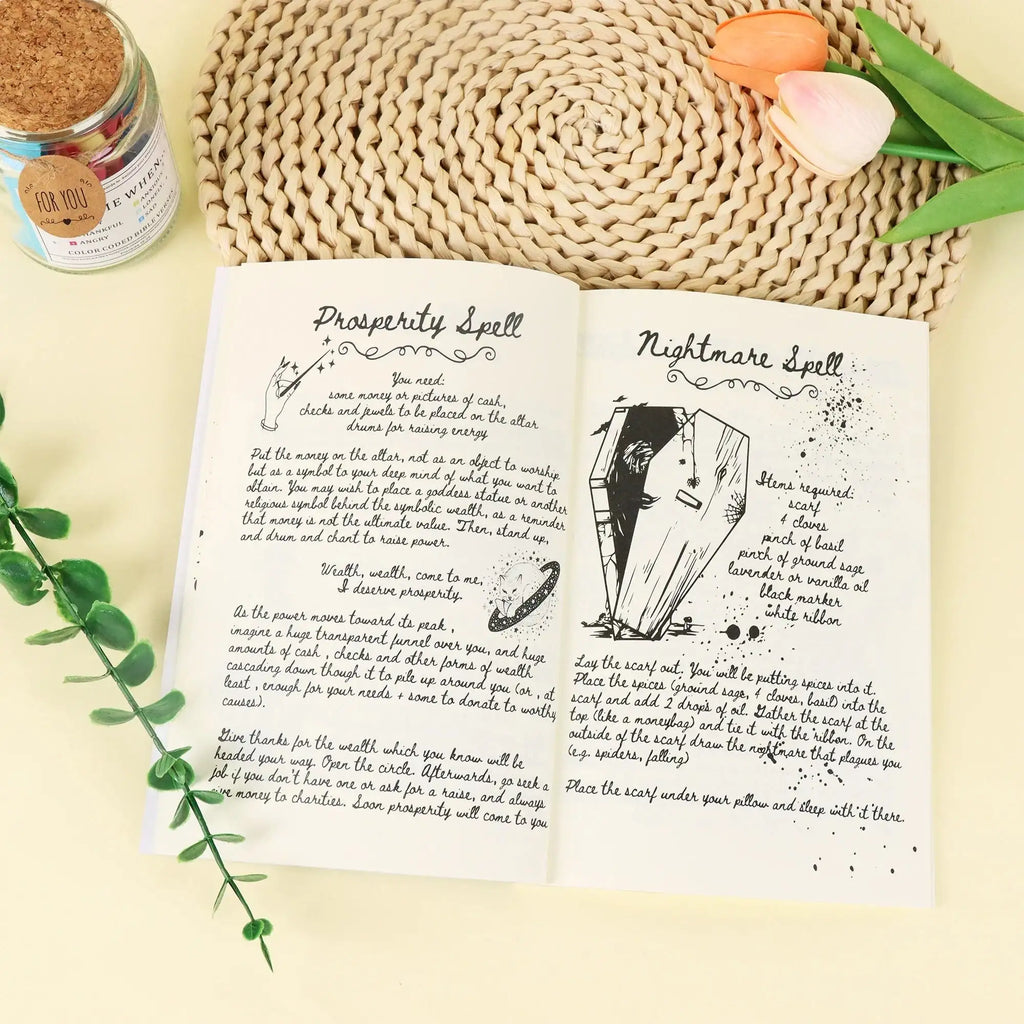 FOR YOU
ME WHEN:
THANKFUL
ANGRY
SAD
COLOR CODED BIBLE VERSES
Prosperity Spell
You need:
some money or pictures of cash,
checks and jewels to be placed on the altar
drums for raising energy
Put the money on the altar, not as an object to worship
but as a symbol to your deep mind of what you want to
obtain. You may wish to place a goddess statue or another
religious symbol behind the symbolic wealth, as a reminder
that money is not the ultimate value. Then, stand up,
and drum and chant to raise power.
Wealth, wealth, come to me,
I deserve prosperity.
As the power moves toward its peak ,
imagine a huge transparent funnel over you, and huge
amounts of cash , checks and other forms of wealth
cascading down though it to pile up around you (or , at
least , enough for your needs + some to donate to worthy
causes).
Give thanks for the wealth which you know will be
headed your way. Open the circle. Afterwards, go seek a
job if you don't have one or ask for a raise, and always
give money to charities. Soon prosperity will come to you
Nightmare Spell
Items required:
scarf
4 cloves
pinch of basil
pinch of ground sage
lavender or vanilla oil
black marker
white ribbon
Lay the scarf out. You will be putting spices into it.
Place the spices (ground sage, 4 cloves, basil) into the
scarf and add 2 drops of oil. Gather the scarf at the
top (like a moneybag) and tie it with the ribbon. On the
outside of the scarf draw the nightmare that plagues you
(e.g. spiders, falling)
Place the scarf under your pillow and sleep with it there.